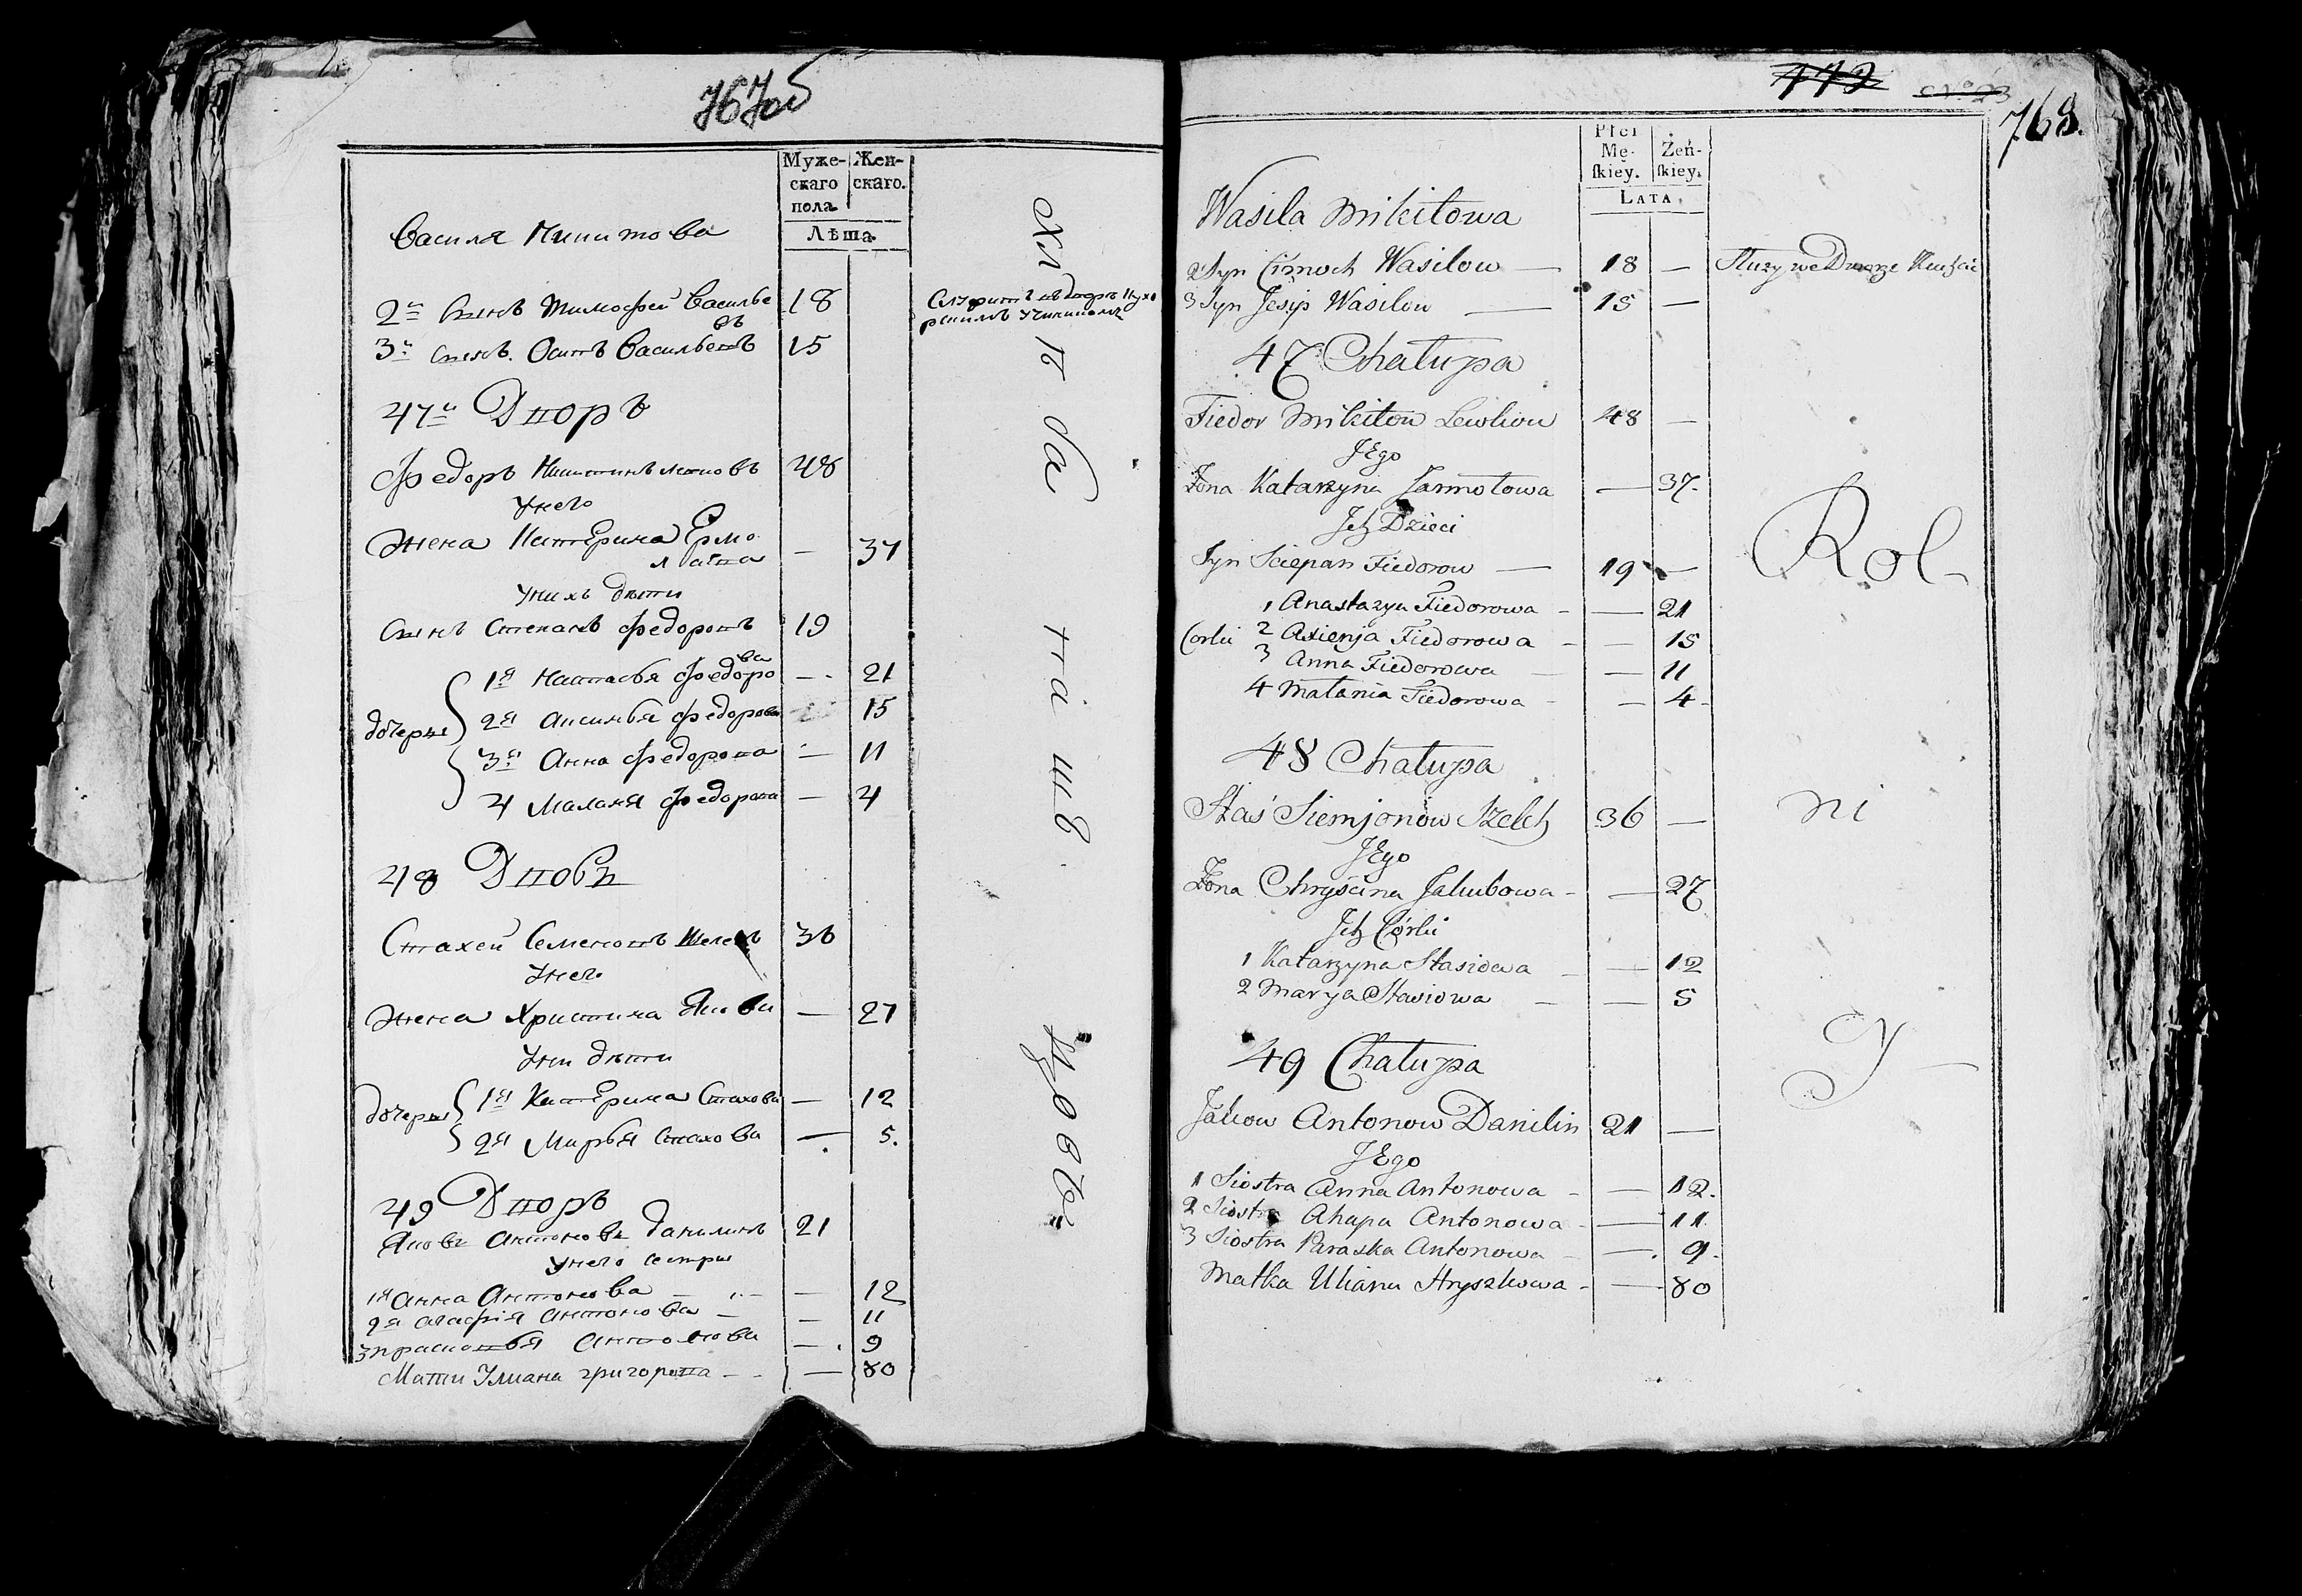 767об
Муже-
скаго
пола
Жен-
скаго.
Лѣта.
Василя Никитова
2й Сынъ Тимофей Василье
въ 18
3й Сынъ Осипъ Васильевъ 15
47й Дворъ
Федоръ Никитинъ 48
У него
Жена Катерина Ермо
лаева — 37
У нихъ дѣти
Сынъ Степанъ Федоровъ 19
дочери
1я Настасья Федоро
ва — 21
2я Аксинья Федорова 15
3я Анна Федорова — 11
4 Маланя Федорова — 4
48 Дворъ
Стахей Семеновъ Шелехъ 36
У него
Жена Христина Якови — 27
У ни дѣти
дочери
1я Катерина Стахова — 12
2я Марья Стахова — 5.
49 Дворъ
Яковъ Антоновъ Данилинъ 21
У него сестры
1я Анна Антонова — 12
2я Агафія Антонова — 11
3 Прасковья Антонова — 9
Мати Улиана Григорова — 80
Служитъ въ дворѣ
Хлѣбо
па
ш
цовъ
772
№ 23
768.
Płci
Mę-
ſkiey.
Żeń-
ſkiey.
LATA
Wasila Mikitowa
2 Syn Cimoch Wasilow — 18 — Służy we Dworze
3 Syn Jesip Wasilow — 15 —
47 Chałupa
Fiedor Mikitow Lewkow 48 —
JEgo
Żona Katarzyna Jarmołowa — 37.
Jch Dzieci
Syn Sciepan Fiedorow — 19 —
1 Anastazya Fiedorowa — 21
Corki 2 Axienja Fiedorowa — 15
3 Anna Fiedorowa — 11
4 Małania Fiedorowa — 4
48 Chałupa
Staś Siemjonow Szelch 36 —
JEgo
Żona Chryścina Jakubowa — 27
Jch Córki
1 Katarzyna Stasiowa — 12
2 Marya Stasiowa — 5
49 Chałupa
Jakow Antonow Danilin 21 —
JEgo
1 Siostra Anna Antonowa — 12.
2 Siostra Ahapa Antonowa — 11
3 Siostra Paraska Antonowa — 9.
Matka Uliana Hryszkowa — 80
Rol-
ni